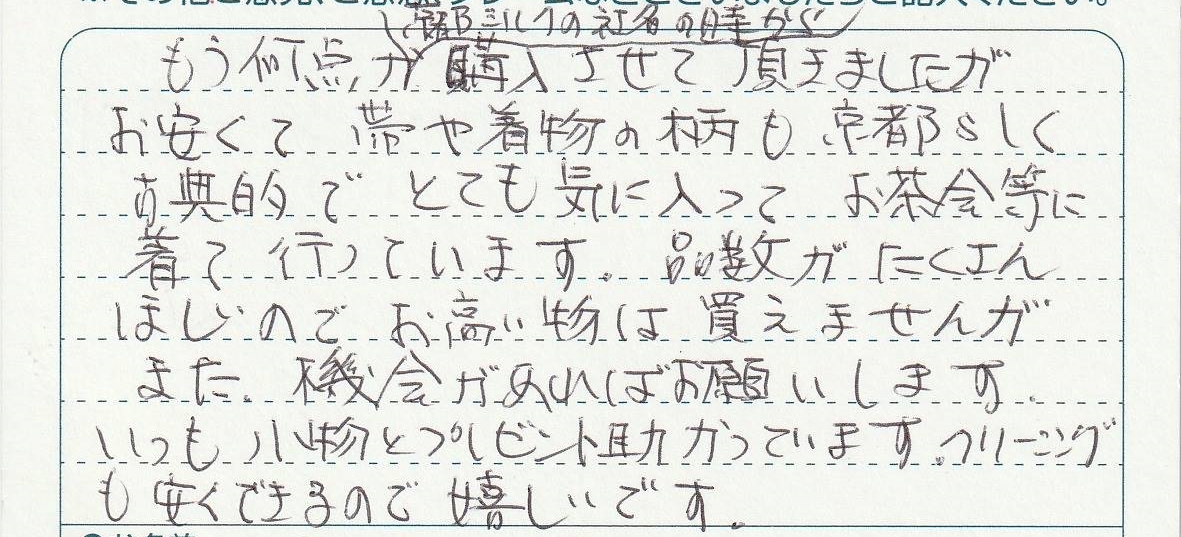 京都ミルクの社名の時から
もう何点か購入させて頂きましたが
お安くて 帯や着物の柄も 京都らしく
古典的で とても気に入って お茶会等に
着て 行っています。 品数が たくさん
ほしいので お高い物は 買えませんが
また、機会があればお願いします。
いつも 小物とプレゼント助かっています。クリーニング
も安くできるので 嬉しいです。